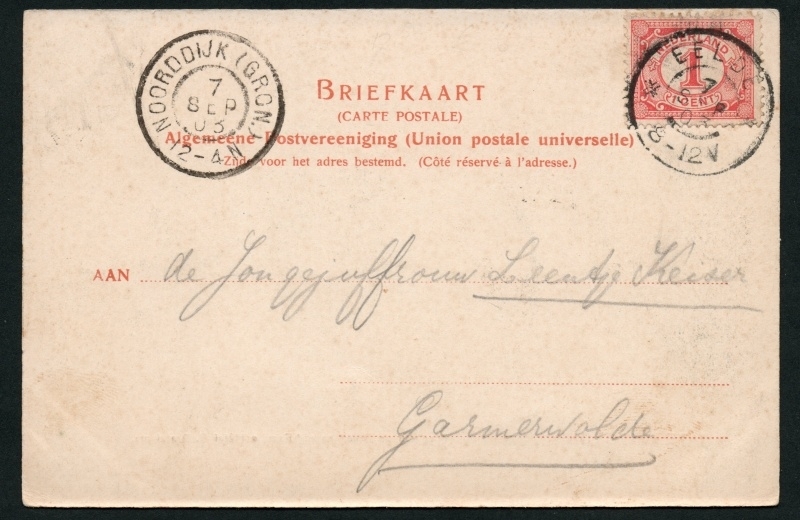 NOORDDIJK (GRON.)
7
SEP
03
12-4N
NEDERLAND
1
CENT
EELDE
7
8-12V
BRIEFKAART
(CARTE POSTALE)
Algemeene Postvereeniging (Union postale universelle)
Zijde voor het adres bestemd. (Côté réservé à l'adresse.)
AAN de Jongejuffrouw Leentje Keiser
Garmerwolde